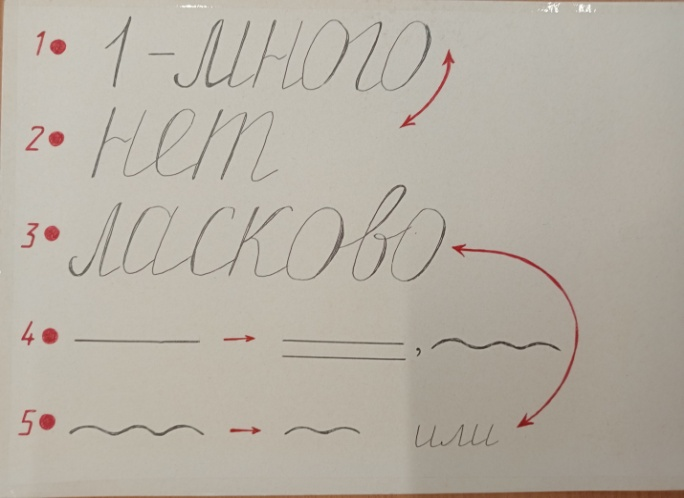 1 1-много
2 нет
3 ласково
4 ,
5 или